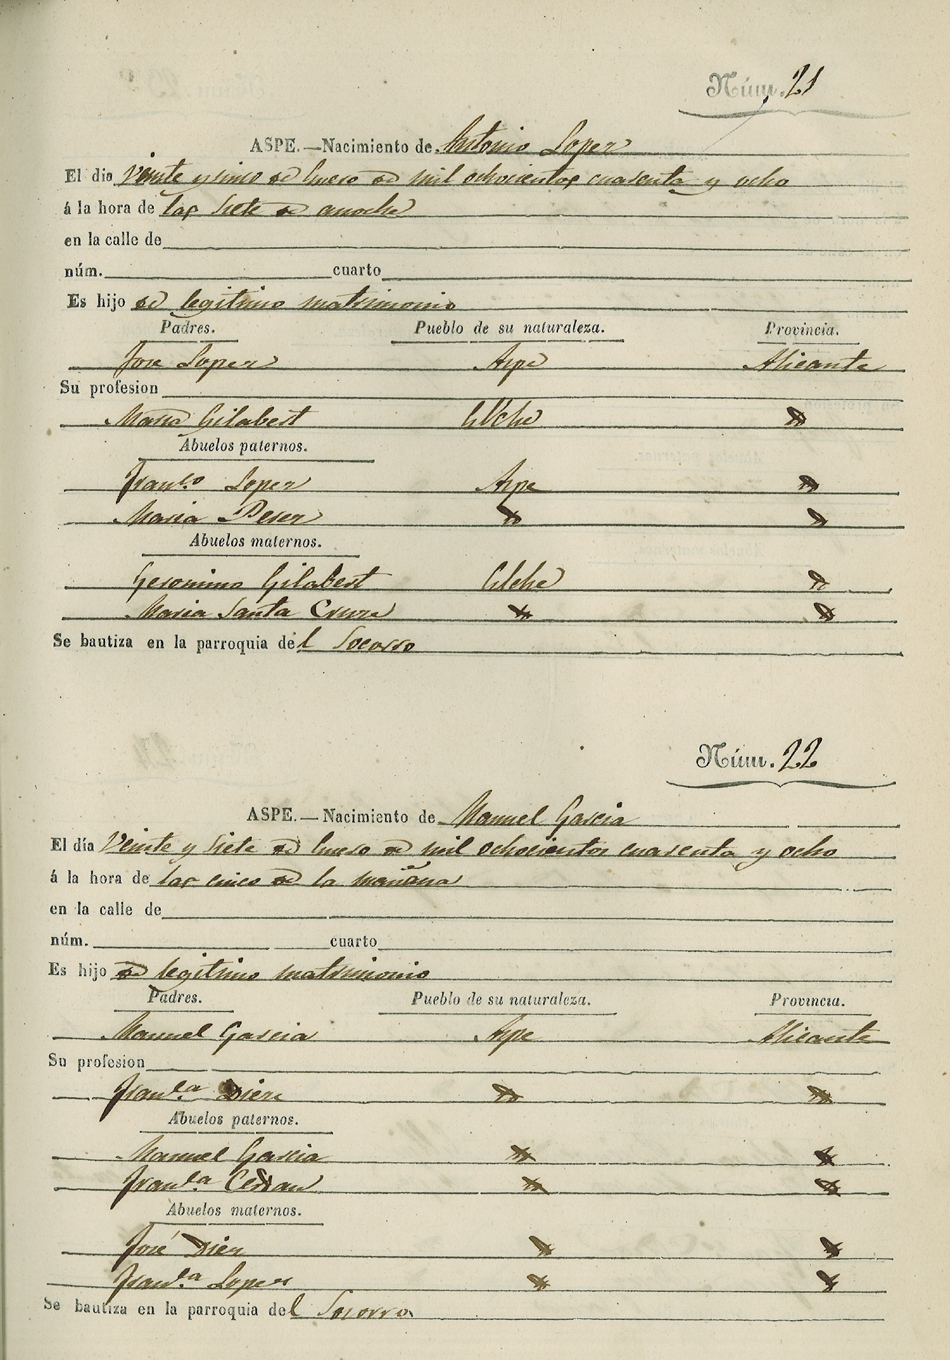 Núm. 21
ASPE.—Nacimiento de Antonio Lopez
El dia Veinte y cinco de Enero de mil ochocientos cuarenta y ocho
á la hora de las siete de anoche
en la calle de
núm. cuarto
Es hijo de legitimo matrimonio
Padres. Pueblo de su naturaleza. Provincia.
Jose Lopez Aspe Alicante
Su profesion
Maria Gilabert Elche
Abuelos paternos.
Franco Lopez Aspe
Maria
Abuelos maternos.
Geronimo Gilabert Elche
Maria Santa Cruz
Se bautiza en la parroquia del Socorro
Núm. 22
ASPE.—Nacimiento de Manuel Garcia
El día Veinte y siete de Enero de mil ochocientos cuarenta y ocho
á la hora de las cinco de la mañana
en la calle de
núm. cuarto
Es hijo de legitimo matrimonio
Padres. Pueblo de su naturaleza. Provincia.
Manuel Garcia Aspe Alicante
Su profesion
Franca Diez
Abuelos paternos.
Manuel Garcia
Franca
Abuelos maternos.
José Diez
Franca Lopez
Se bautiza en la parroquia del Socorro